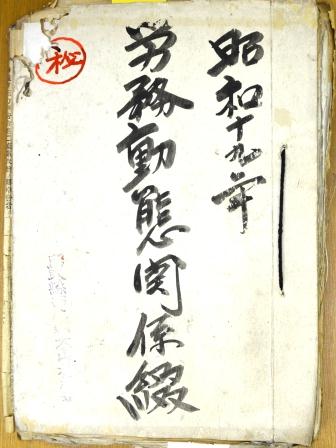 昭和十九年
労務動態関係綴
秘